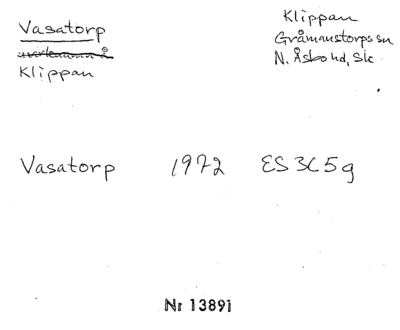 Vasatorp
Klippan
Klippan
Gråmanstorps sn
N. Åsbo hd, Sk
Vasatorp 1972 ES 3C5g
Nr 13891